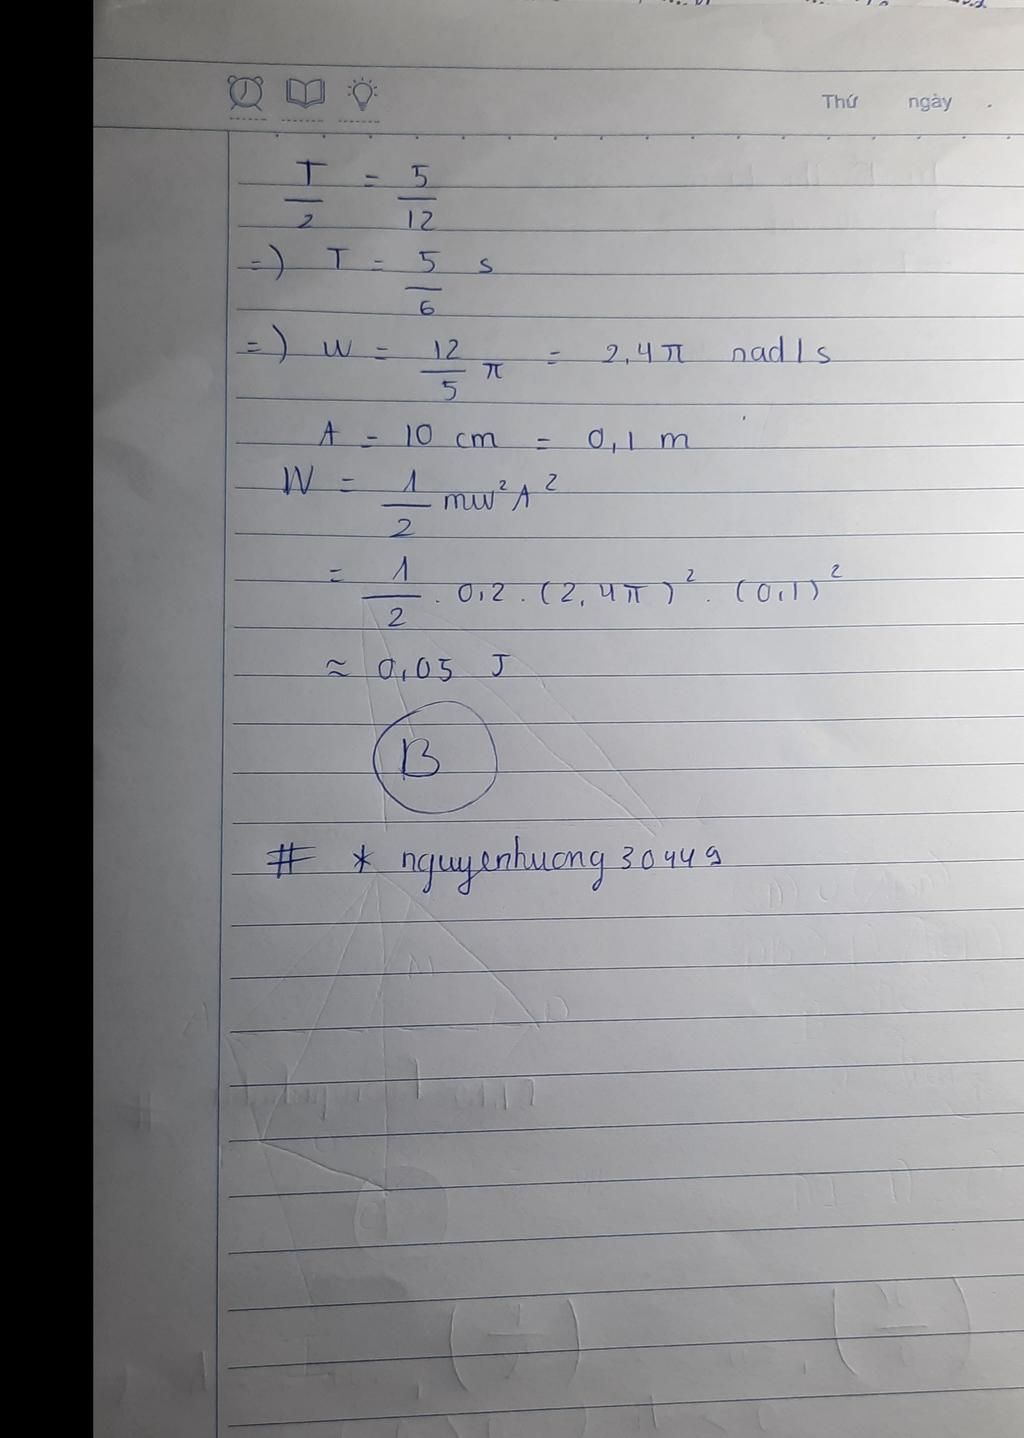 Thứ ngày .
T/2 = 5/12
=) T = 5/6 s
=) W = 12/5 π = 2,4π rad/s
A = 10 cm = 0,1 m
W = 1/2 mw² A²
= 1/2 . 0,2 . (2,4π)² . (0,1)²
≈ 0,05 J
B
# * nguyenhuong30449